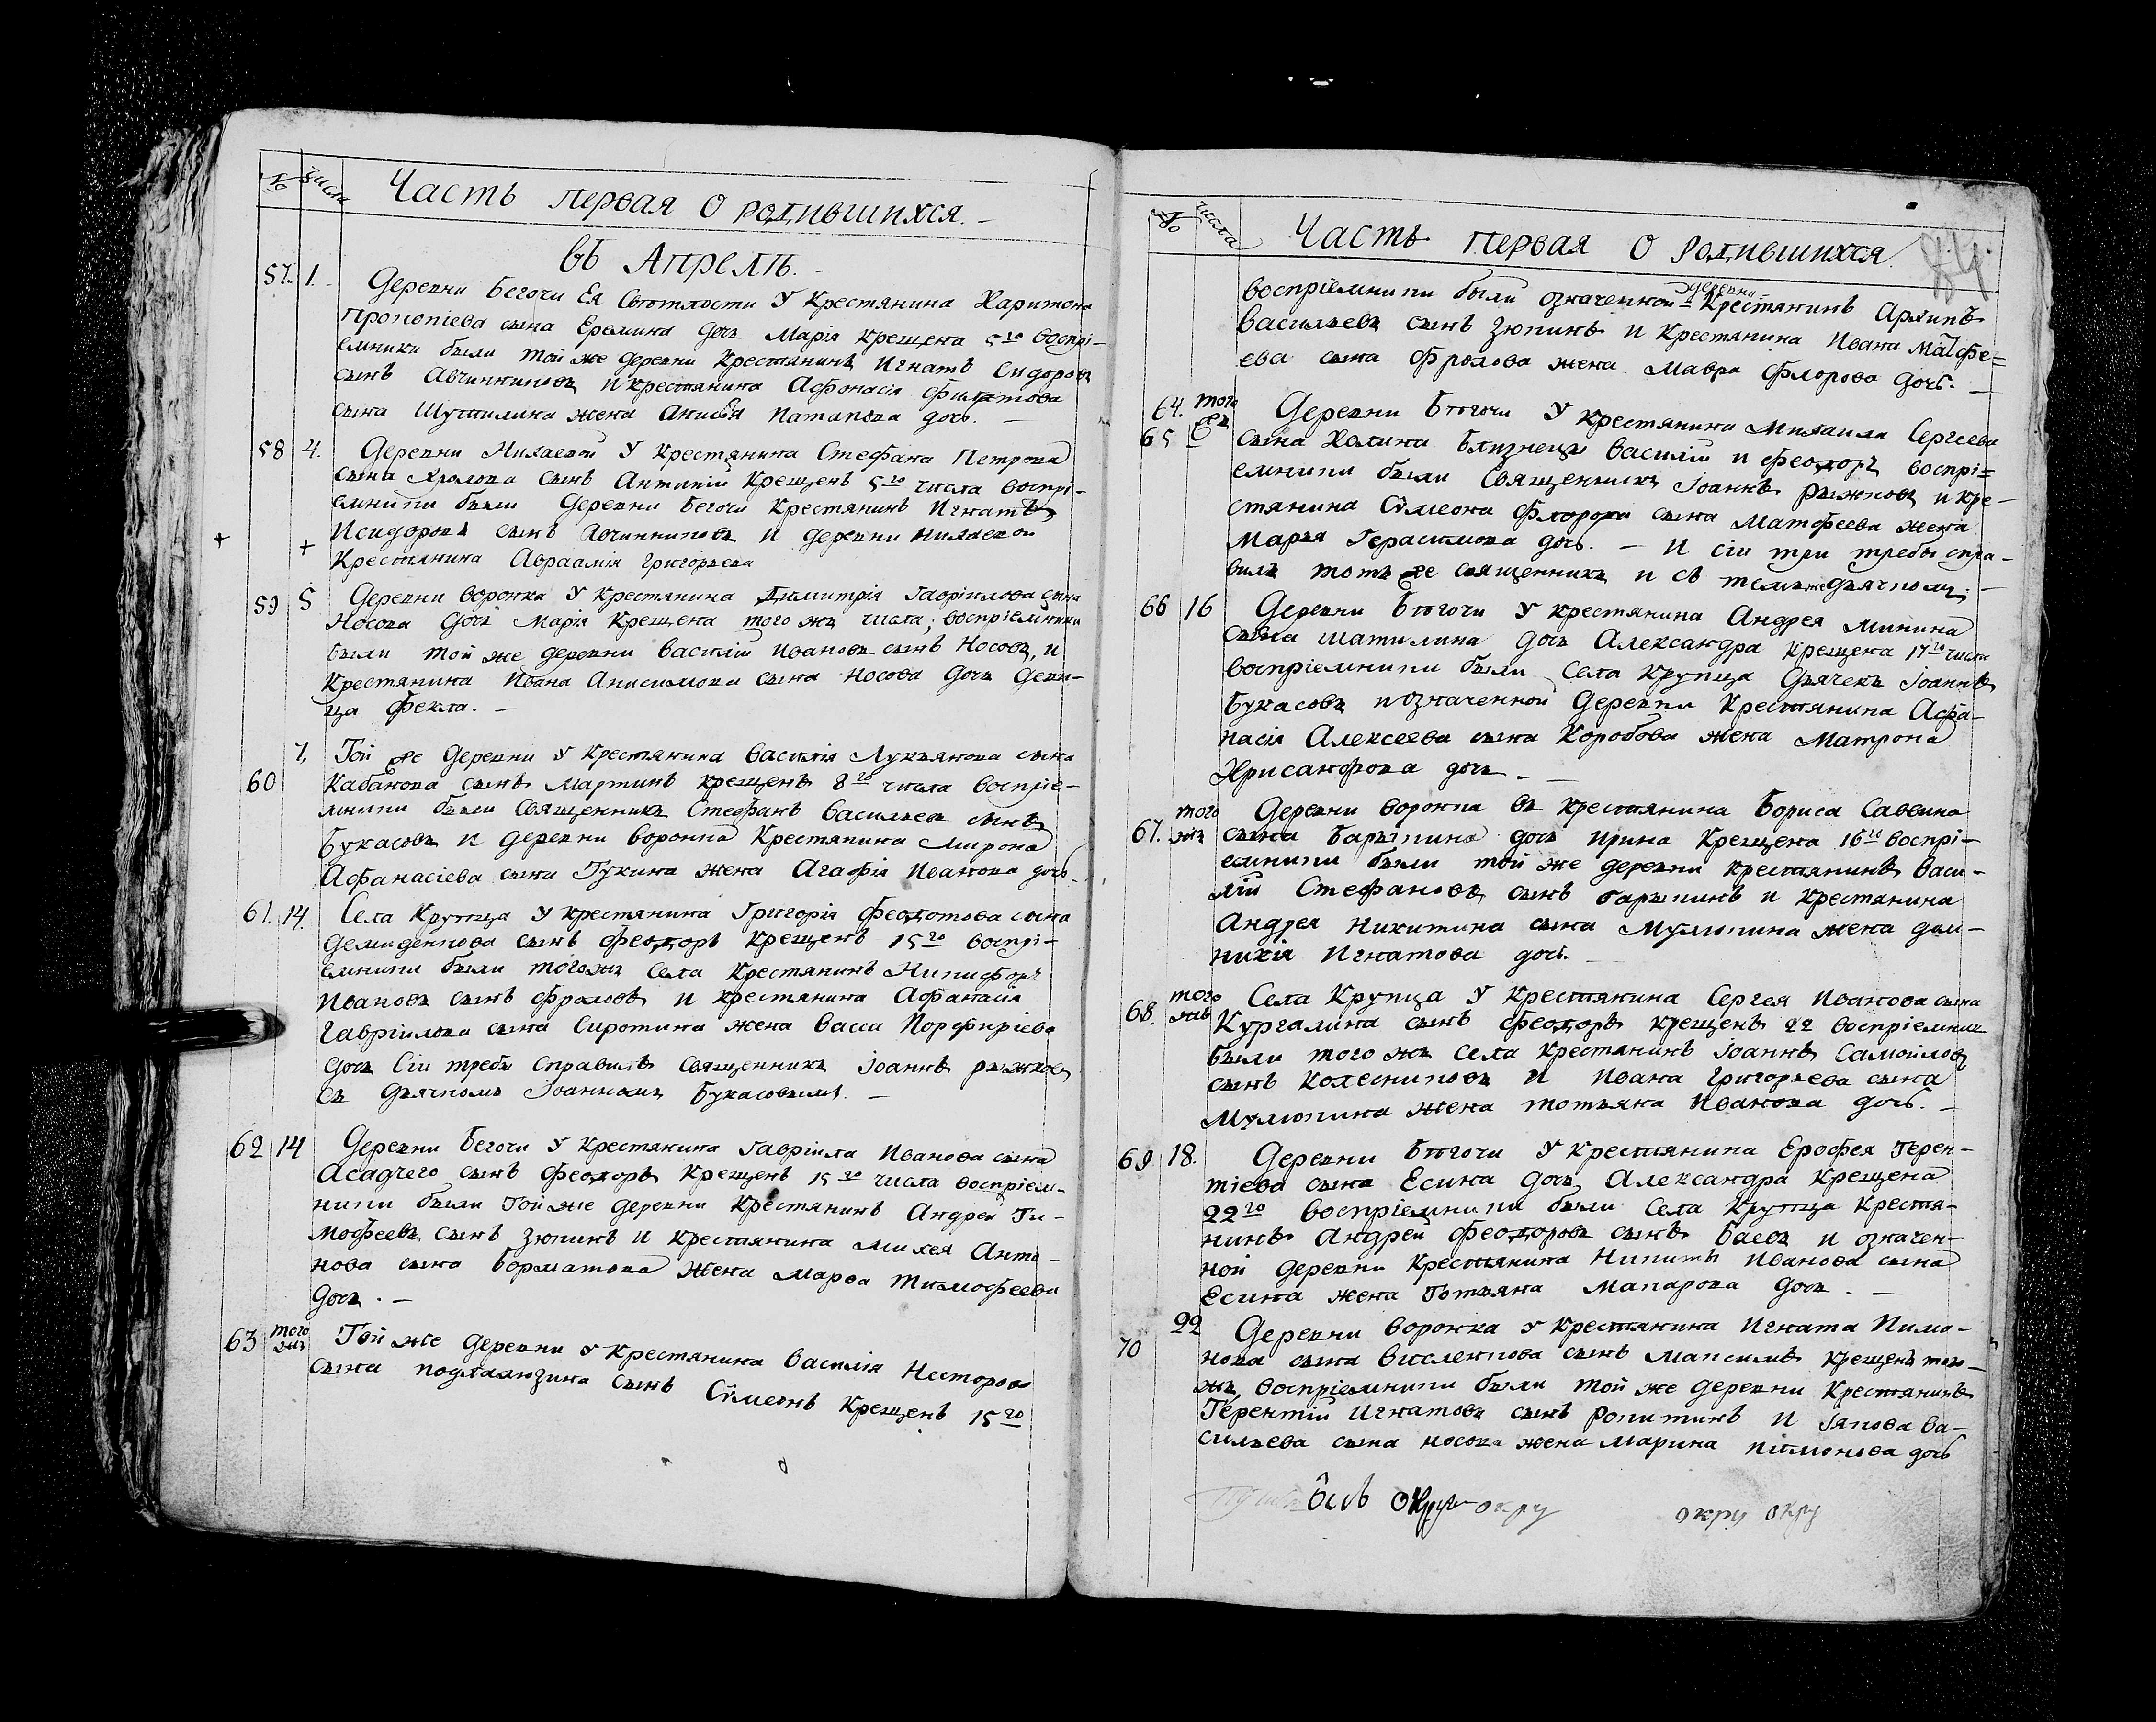 № числа Часть первая о родившихся. -
въ Апрелѣ. -
57. 1. Деревни Бегочи Ея Свѣтлости у Крестянина Харитона
Прокопіева сына Еремина дочь Марія Крещена 5го воспрі-
емники были той же деревни Крестянинъ Игнатъ Сидоровъ
сынъ Авчинниковъ и крестянина Афонасія Филатова
сына Шутилина жена Анисія Патапова дочь. -
58 4. Деревни Нилаевой у Крестянина Стефана Петрова
сына сынъ Антипій Крещенъ 5го числа воспрі-
емники были деревни Бегочи Крестянинъ Игнатъ
Исидоровъ сынъ Авчинниковъ и деревни Нилаевой
Крестянина Авраамія Григорьева
59 5 Деревни Воронка у Крестянина Димитрія Гавріилова сына
Носова дочь Марія Крещена того жъ числа; воспріемники
были той же деревни Василій Ивановъ сынъ Носовъ, и
Крестянина Ивана Анисимова сына Носова дочь деви-
ца Фекла. -
7, Той же деревни у Крестянина Василія Лукьянова сына
60 Кабанова сынъ Мартинъ крещенъ 8го числа воспріе-
мники были Священникъ Стефанъ Васильевъ сынъ
Букасовъ и деревни Воронка Крестянина Мирона
Афанасіева сына Гукина жена Агафія Иванова дочь.
61. 14. Села Крупца у крестянина Григорія Феодотова сына
Демиденкова сынъ Феодоръ крещенъ 15го воспрі-
емники были тогожъ села Крестянинъ Никифоръ
Ивановъ сынъ Фроловъ и крестянина Афанасія
Гавріилова сына Сиротина жена Васса Порфиріева
дочь Сіи требы справилъ священникъ Іоаннъ Рыжковъ
съ дьячкомъ Іоанномъ Букасовымъ. -
62 14 Деревни Бегочи у Крестянина Гавріила Иванова сына
Асадчего сынъ Феодоръ Крещенъ 15го числа воспріем-
ники были Той же деревни Крестянинъ Андрей Ти-
мофеевъ сынъ Зюкинъ и Крестянина Михея Анто-
нова сына Борматова жена Марѳа Тимофеева
дочь. -
63 того жъ Той же деревни у Крестянина Василія Несторова
сына сынъ Сѵмеонъ Крещенъ 15го
№ числа Часть первая о родившихся.
деревни
воспріемники были означенной Крестянинъ Архипъ
Васильевъ сынъ Зюкинъ и Крестянина Ивана Матфе=
ева сына Фролова жена Мавра Флорова дочь. -
64. того жъ Деревни Бѣгочи у Крестянина Михаила Сергіева
65 сына Холина близнецы Василій и Феодоръ воспрі=
емники были Священникъ Іоаннъ Рыжковъ и кре-
стянина Сѵмеона Флорова сына Матфеева жена
Марья Герасимова дочь. - и сіи три требы спра-
вилъ тотъ же священникъ и съ темъ же дьячкомъ. -
66 16 Деревни Бѣгочи у крестянина Андрея Минина
сына Шатилина дочь Александра Крещена 17го числа
воспріемники были села Крупца Дьячекъ Іоаннъ
Букасовъ и означенной Деревни Крестянина Афа-
насія Алексеева сына Коробова жена Матрона
Хрисанфова дочь. -
67. того жъ Деревни Воронка въ крестянина Бориса Саввина
сына Барыкина дочь Ирина Крещена 16го воспрі-
емники были той же деревни крестянинъ Васи-
лій Стефановъ сынъ Барыкинъ и Крестянина
Андрея Никитина сына Мулюкина жена дом-
никія Игнатова дочь. -
68. того жъ Села Крупца у Крестянина Сергея Иванова сына
Кургалина сынъ Феодоръ крещенъ 22 воспріемники
были того жъ Села Крестянинъ Іоаннъ Самойловъ
сынъ Колесниковъ и Ивана Григорьева сына
Мулюкина жена Тотьяна Иванова дочь. -
69 18. Деревни Бѣгочи у Крестянина Ерофея Терен-
тіева сына Есина дочь Александра Крещена
22го воспріемники были Села Крупца Крестя-
нинъ Андрей Феодоровъ сынъ Баевъ и означен-
ной деревни Крестянина Никиты Иванова сына
Есина жена Тотьяна Макарова дочь. -
22 Деревни Воронка у Крестянина Игната Пимо-
70 нова сына Висленкова сынъ Максимъ Крещенъ того-
жъ, воспріемники были той же деревни Крестянинъ
Терентій Игнатовъ сынъ Рокитинъ и Іякова Ва-
сильева сына Носова жена Марина Пимонова дочь
окру окру окру